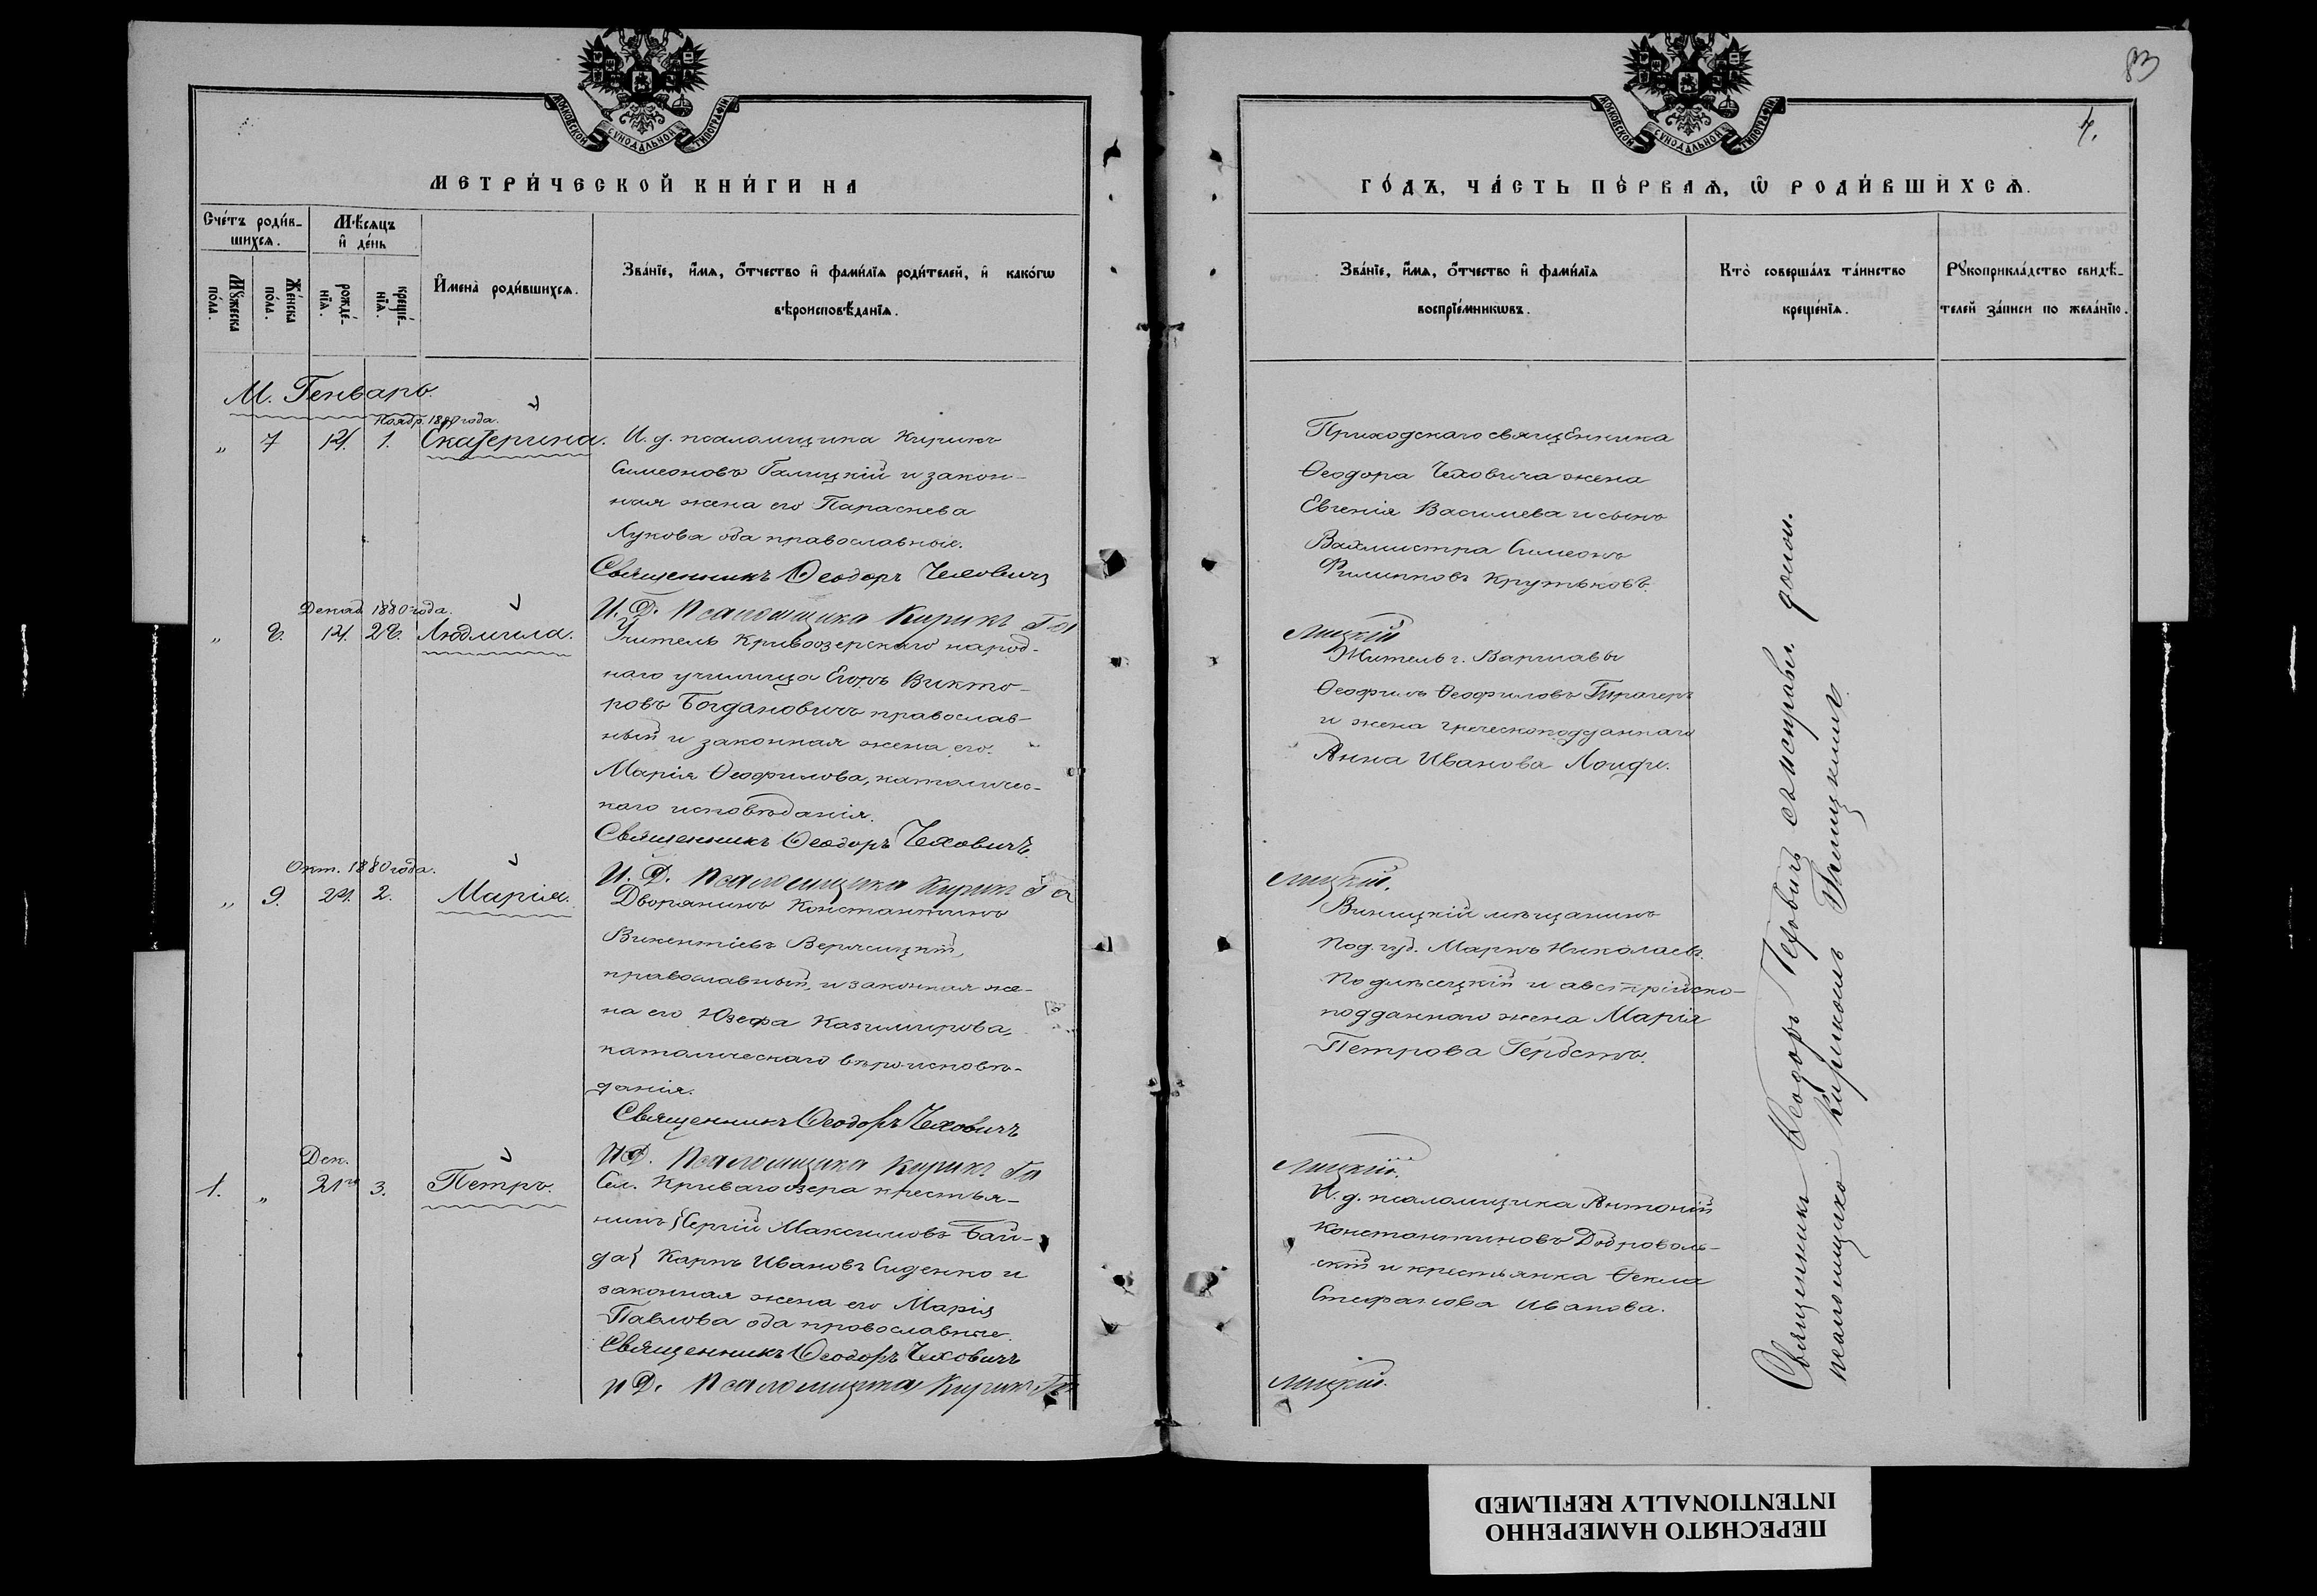 МОСКОВСКОЙ СѴНОДАЛЬНОЙ ТИПОГРАФІИ
МЕТРИ́ЧЕСКОЙ КНИ́ГИ НА
Сче́тъ роди́в-
шихсѧ.
Мꙋ́жеска
по́ла.
Же́нска
по́ла.
Мѣ́сѧцъ
и҆ де́нь
рожде́-
нїѧ.
креще́-
нїѧ.
И҆мена̀ роди́вшихсѧ.
Зва́нїе, и҆́мѧ, ѻ҆́тчество и҆ фами́лїѧ роди́телей, и҆ како́гѡ
вѣроисповѣ́данїѧ.
М. Генварь.
Ноябр. 1880 года.
„ 7 14. 1. Екатерина.
И. д. псаломщика Кирикъ
Симеоновъ Галицкій и закон-
ная жена его Параскева
Лукова оба православные.
Священникъ Ѳеодоръ Чеховичъ
И. Д. Псаломщика Кирикъ Га
Декаб. 1880 года.
„ 8. 14. 28. Людмила.
Учитель Кривоозерскаго народ-
наго училища Егоръ Викто-
ровъ Богдановичъ православ-
ный и законная жена его
Марія Ѳеофилова, католичес-
каго исповѣданія.
Священникъ Ѳеодоръ Чеховичъ.
И. Д. Псаломщика Кирикъ Га
Окт. 1880 года.
„ 9. 24. 2. Марія.
Дворянинъ Константинъ
Викентіевъ
православный, и законная же-
на его Юзефа Казимирова,
католическаго вѣроисповѣ-
данія.
Священникъ Ѳеодоръ Чеховичъ
И Д. Псаломщика Кирикъ Га
Дек.
1. „ 21го 3. Петръ.
Сел. Криваго озера крестья-
нинъ {Сергій Максимовъ Бай-
да} Карпъ Ивановъ Сиденко и
законная жена его Марія
Павлова оба православные.
Священникъ Ѳеодоръ Чеховичъ
и Д. Псаломщика Кирикъ Га
83
4.
МОСКОВСКОЙ СѴНОДАЛЬНОЙ ТИПОГРАФІИ
ГО́ДЪ, ЧА́СТЬ ПЕ́РВАѦ, Ѽ РОДИ́ВШИХСѦ.
Зва́нїе, и҆́мѧ, ѻ҆́тчество и҆ фами́лїѧ
воспрїе́мникѡвъ.
Кто̀ соверша́лъ та́инство
креще́нїѧ.
Рꙋкоприкла́дство свидѣ́-
телей за́писи по жела́нїю.
Приходскаго священника
Ѳеодора Чеховича жена
Евгенія Василева и сынъ
Вахмистра Симеонъ
Филипповъ Крутьковъ.
лицкій
Житель г. Варшавы
Ѳеофилъ Ѳеофиловъ
и жена греческоподданнаго
Анна Иванова
лицкій.
Винницкій мѣщанинъ
Под. губ. Маркъ Николаевъ
Подлѣсецкій и австрійско-
подданнаго жена Марія
Петрова Гербстъ.
лицкій.
И. д. псаломщика Антоній
Константиновъ Доброволь-
скій и крестьянка Ѳекла
Стефанова Иванова.
лицкій.
Священникъ Ѳеодоръ Чеховичъ съ исправл. долж.
псаломщика Кирикомъ Галицкимъ.
ПЕРЕСНЯТО НАМЕРЕННО
INTENTIONALLY REFILMED